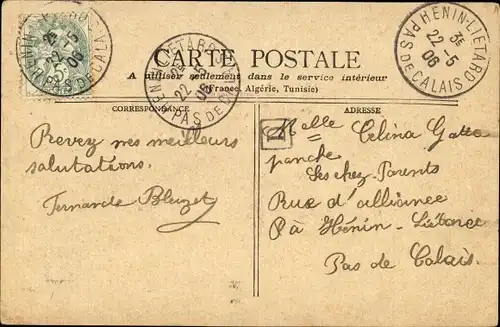 HENIN-LIETARD
3E
22-5
06
PAS DE CALAIS
CARTE POSTALE
A utiliser seulement dans le service intérieur
(France, Algérie, Tunisie)
CORRESPONDANCE
ADRESSE
Revez mes meilleurs
salutations.
Fernande Bleuzet
Melle Celina Gatte
panche
Ses chez-Parents
Rue d'alliance
à Hénin-Liétard
Pas de Calais.